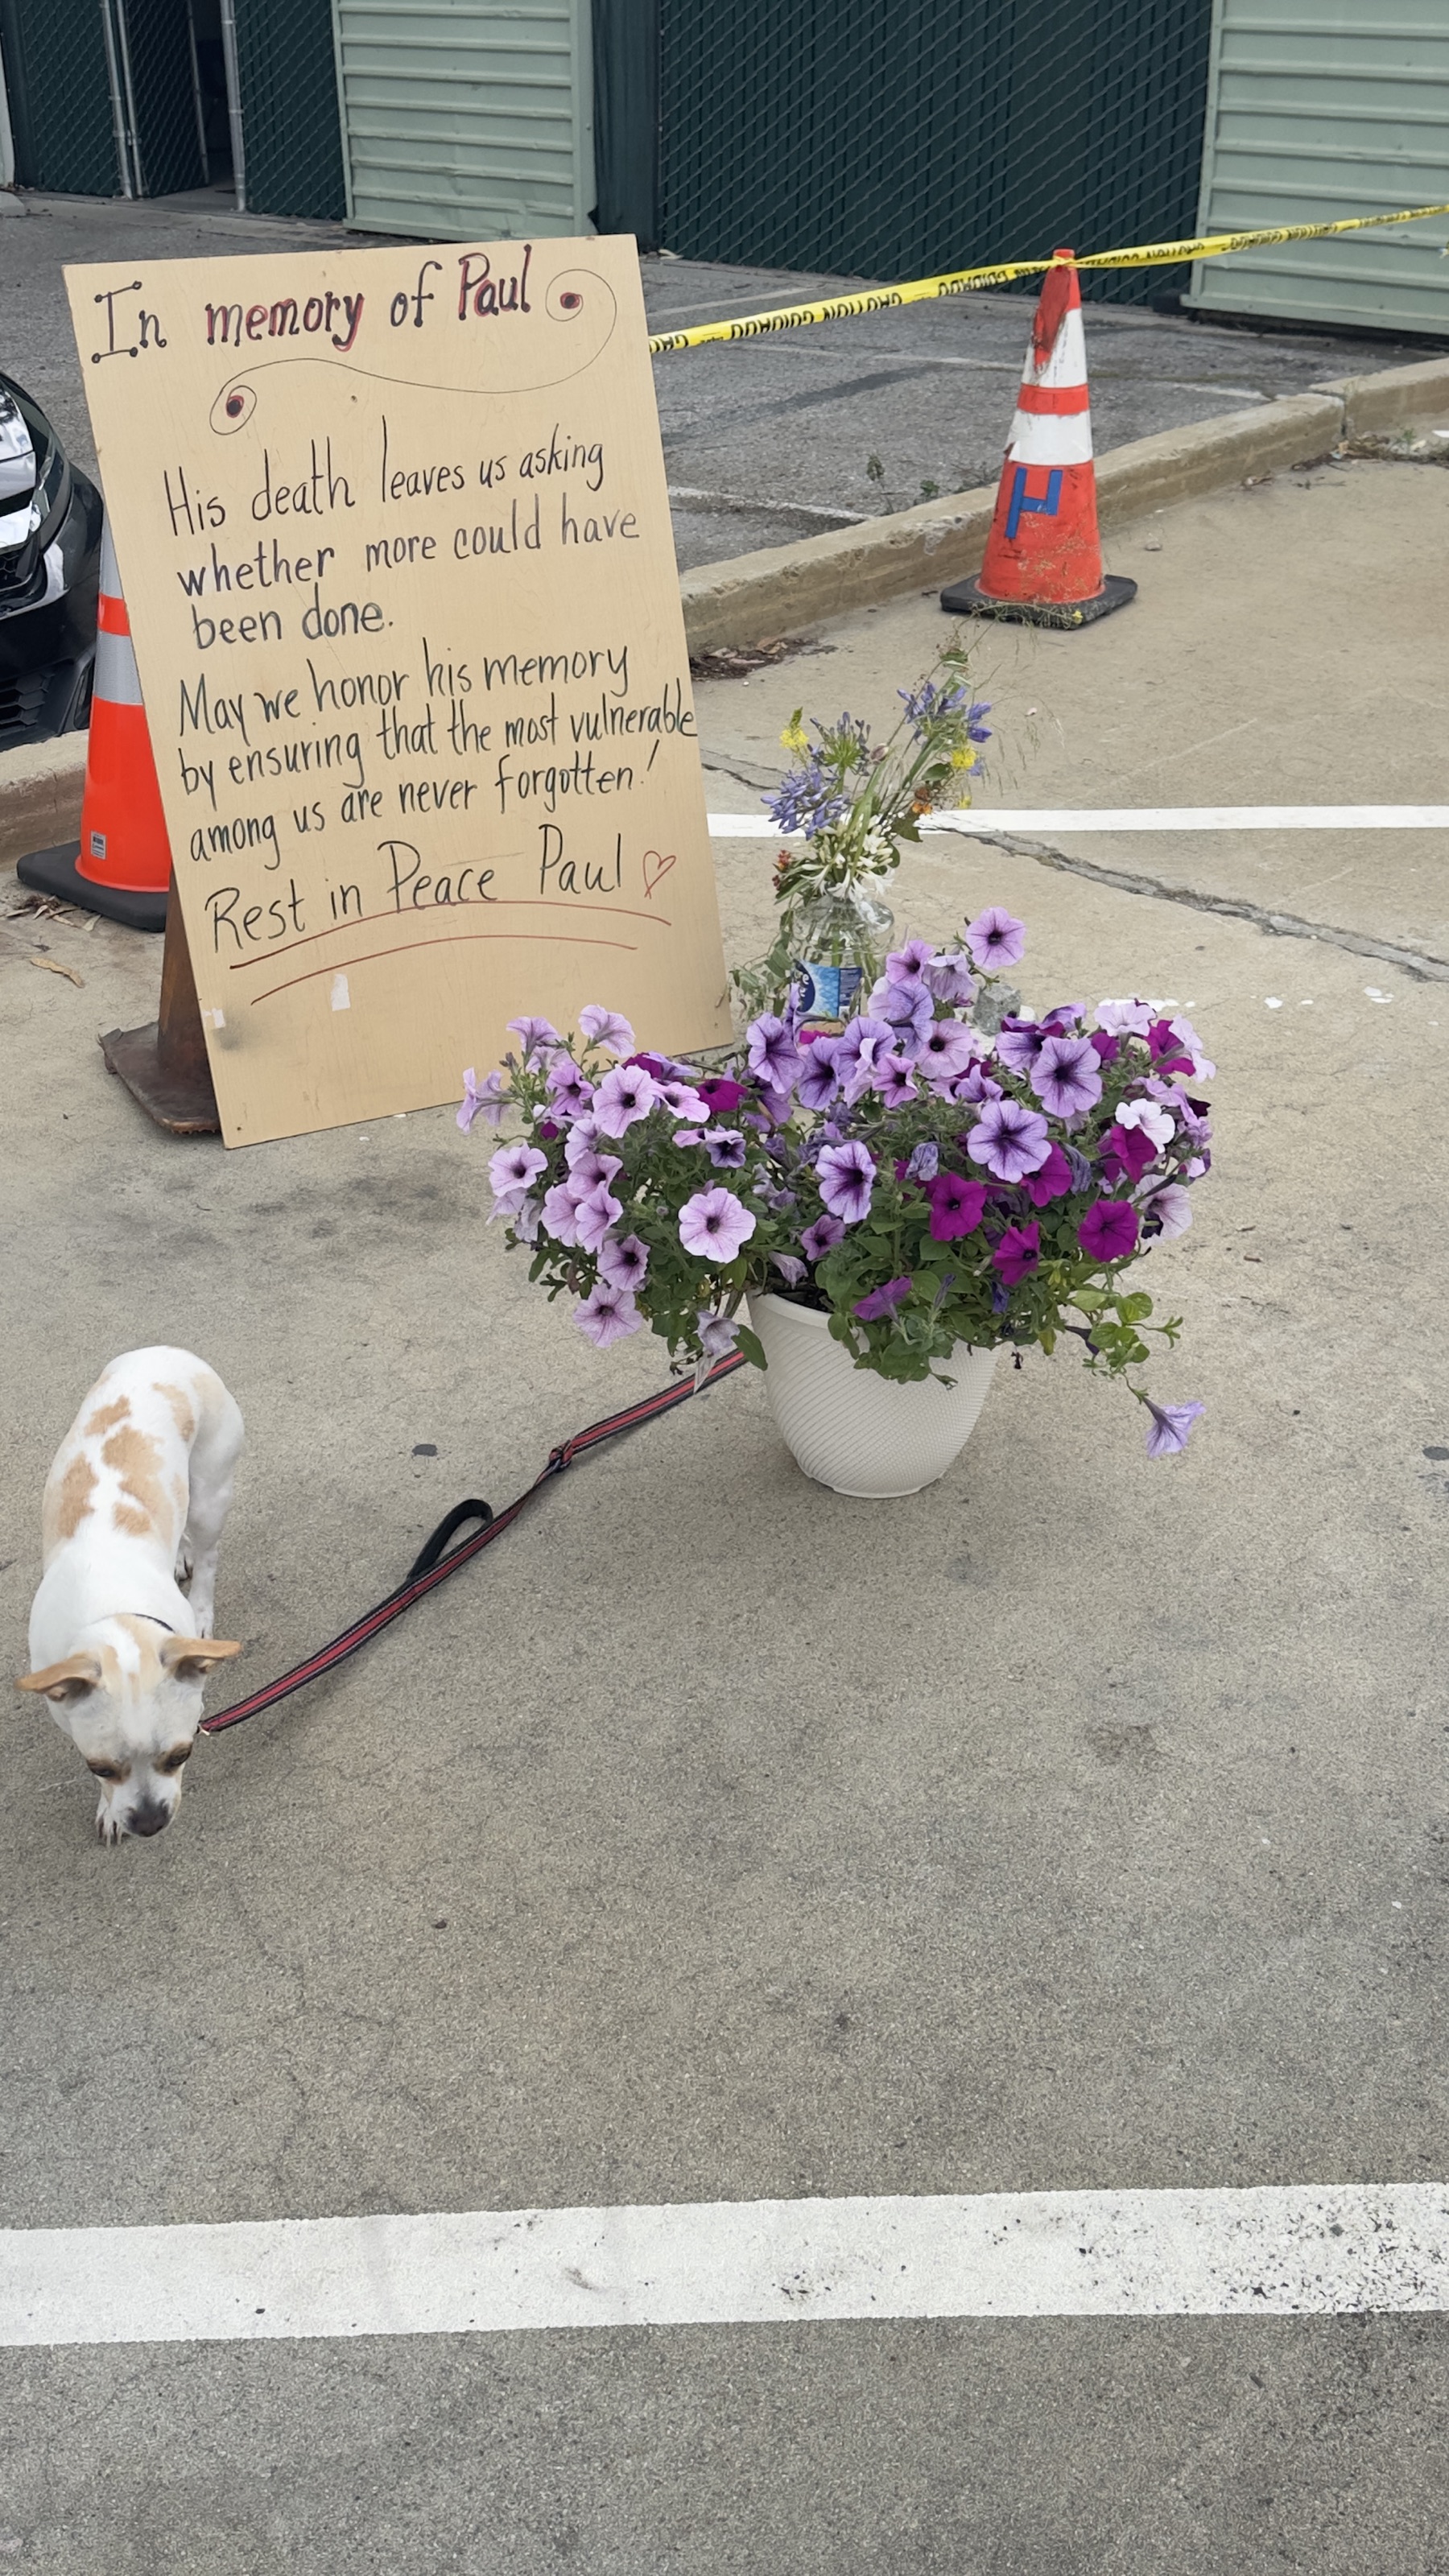 In memory of Paul
His death leaves us asking
whether more could have
been done.
May we honor his memory
by ensuring that the most vulnerable
among us are never forgotten!
Rest in Peace Paul
CAUTION CUIDADO CAUTION CUIDADO
H